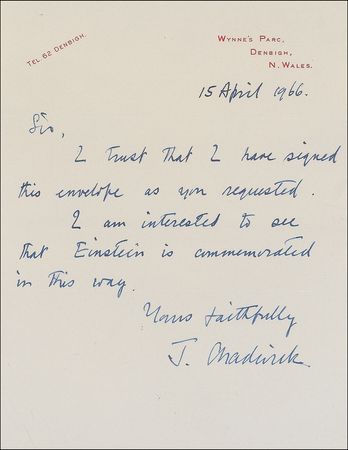 TEL. 62 DENBIGH.
WYNNE'S PARC,
DENBIGH,
N. WALES.
15 April 1966.
Sir,
I trust that I have signed
this envelope as you requested.
I am interested to see
that Einstein is commemorated
in this way.
Yours faithfully
J. Chadwick.